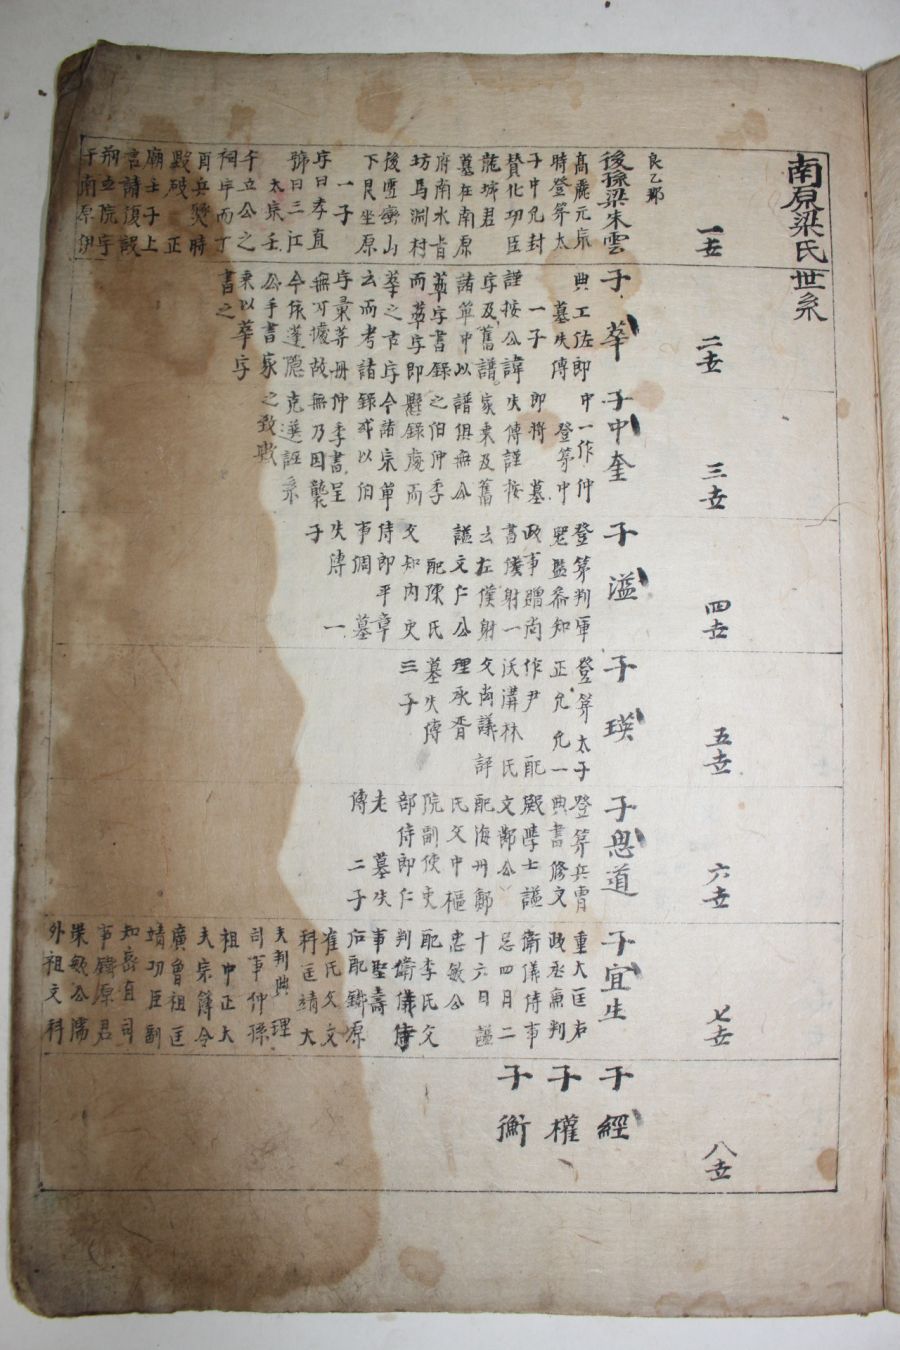 南原梁氏世系
良乙那
一世
後孫梁朱雲
高麗元宗
時登第太
子中允封
贊化功臣
龍城君
墓在南原
府南水旨
坊馬淵村
後壟巒山
下艮坐原
一子
字曰孝直
號曰三江
太宗壬
午立公之
祠宇而丁
酉兵燹時
毀破 正
廟士子上
言請復設
刱立院宇
于南原伊
二世
子 莘
典工佐郎
墓失傳
一子
謹按公諱
字及舊譜
諸單中以
莘字書錄
而莘字即
莘之古字
云而考諸
字彙等冊
無可據故
今依蓬隱
公手書家
乘以莘字
書之
三世
子中奎
中一作仲
登第中
郎將 墓
失傳謹按
家乘及舊
譜俱無公
之伯仲季
懸錄處而
今諸宗單
錄或以伯
仲季書呈
無乃因襲
克選誣系
之致歟
四世
子 溢
登第判軍
器監叅知
政事贈尚
書僕射一
云左僕射
諡文仁公
配陳氏
父知內史
侍郎平章
事 墓
失傳 一
子
五世
子 瑛
登第太子
正允允一
作尹 配
沃溝林氏
父尚議評
理承胥
墓失傳
三子
六世
子思道
登第兵曹
典書修文
殿學士諡
文鄭公
配海州鄭
氏父中樞
院副使吏
部侍郎仁
老 墓失
傳 二子
七世
子宜生
重大匡左
政丞兼判
衛儀侍事
忌四月二
十六日諡
忠敏公
配李氏父
判衛儀侍
事聖壽
后配鐵原
崔氏父文
科匡靖大
夫判典理
司事仲孫
祖中正大
夫宗簿令
廣曾祖匡
靖功臣副
知密直司
事鐵原君
榮敏公濡
外祖文科
八世
子 經
子 權
子 衡